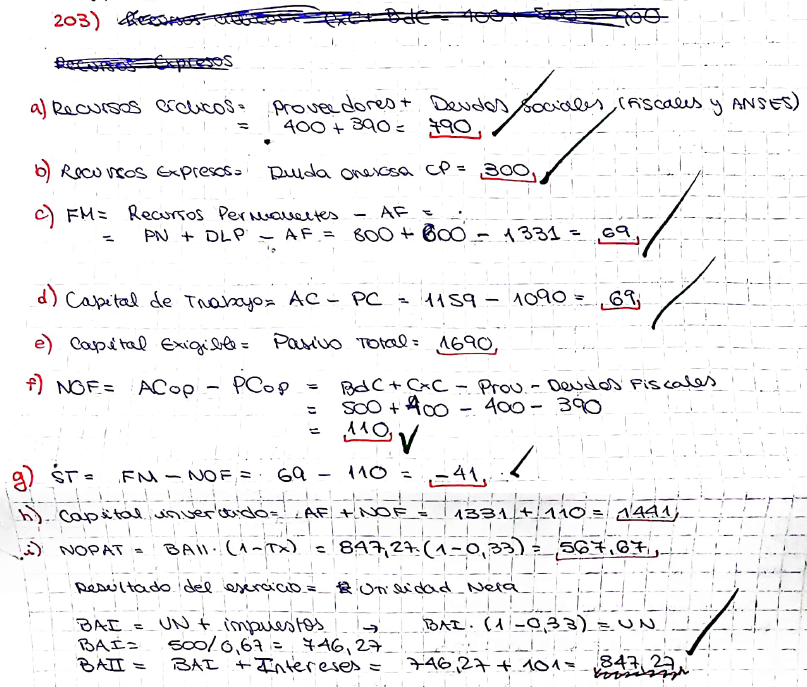 203) Recursos cíclicos = CxC + BdC = 400 + 500 = 900
Recursos Expresos
a) Recursos cíclicos = Proveedores + Deudas Sociales (Fiscales y ANSES)
= 400 + 390 = 790
b) Recursos Expresos = Deuda onerosa CP = 300
c) FM = Recursos Permanentes - AF =
= PN + DLP - AF = 800 + 600 - 1331 = 69
d) Capital de Trabajo = AC - PC = 1159 - 1090 = 69
e) Capital Exigible = Pasivo Total = 1690
f) NOF = ACop - PCop = BdC + CxC - Prov - Deudas Fiscales
= 500 + 400 - 400 - 390
= 110
g) ST = FM - NOF = 69 - 110 = -41
h) Capital invertido = AF + NOF = 1331 + 110 = 1441
i) NOPAT = BAII · (1-Tx) = 847,27 · (1-0,33) = 567,67
Resultado del ejercicio = Utilidad Neta
BAI = UN + impuestos → BAI · (1-0,33) = UN
BAI = 500/0,67 = 746,27
BAII = BAI + Intereses = 746,27 + 101 = 847,27